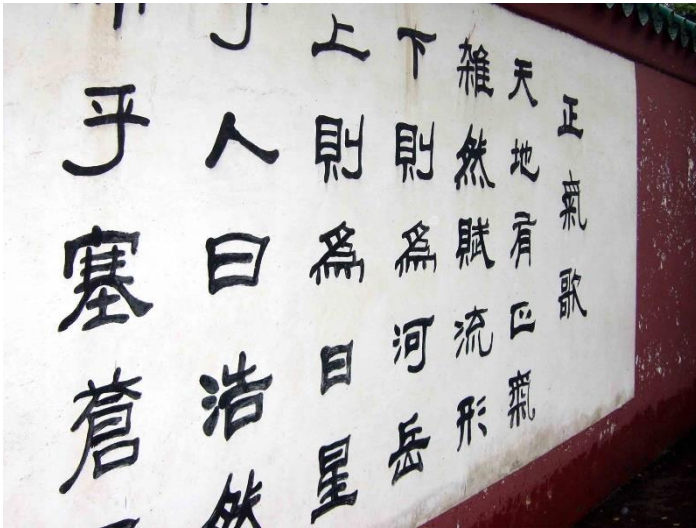 正氣歌
天地有正氣
雑然賦流形
下則爲河岳
上則爲日星
于人曰浩然
乎塞蒼